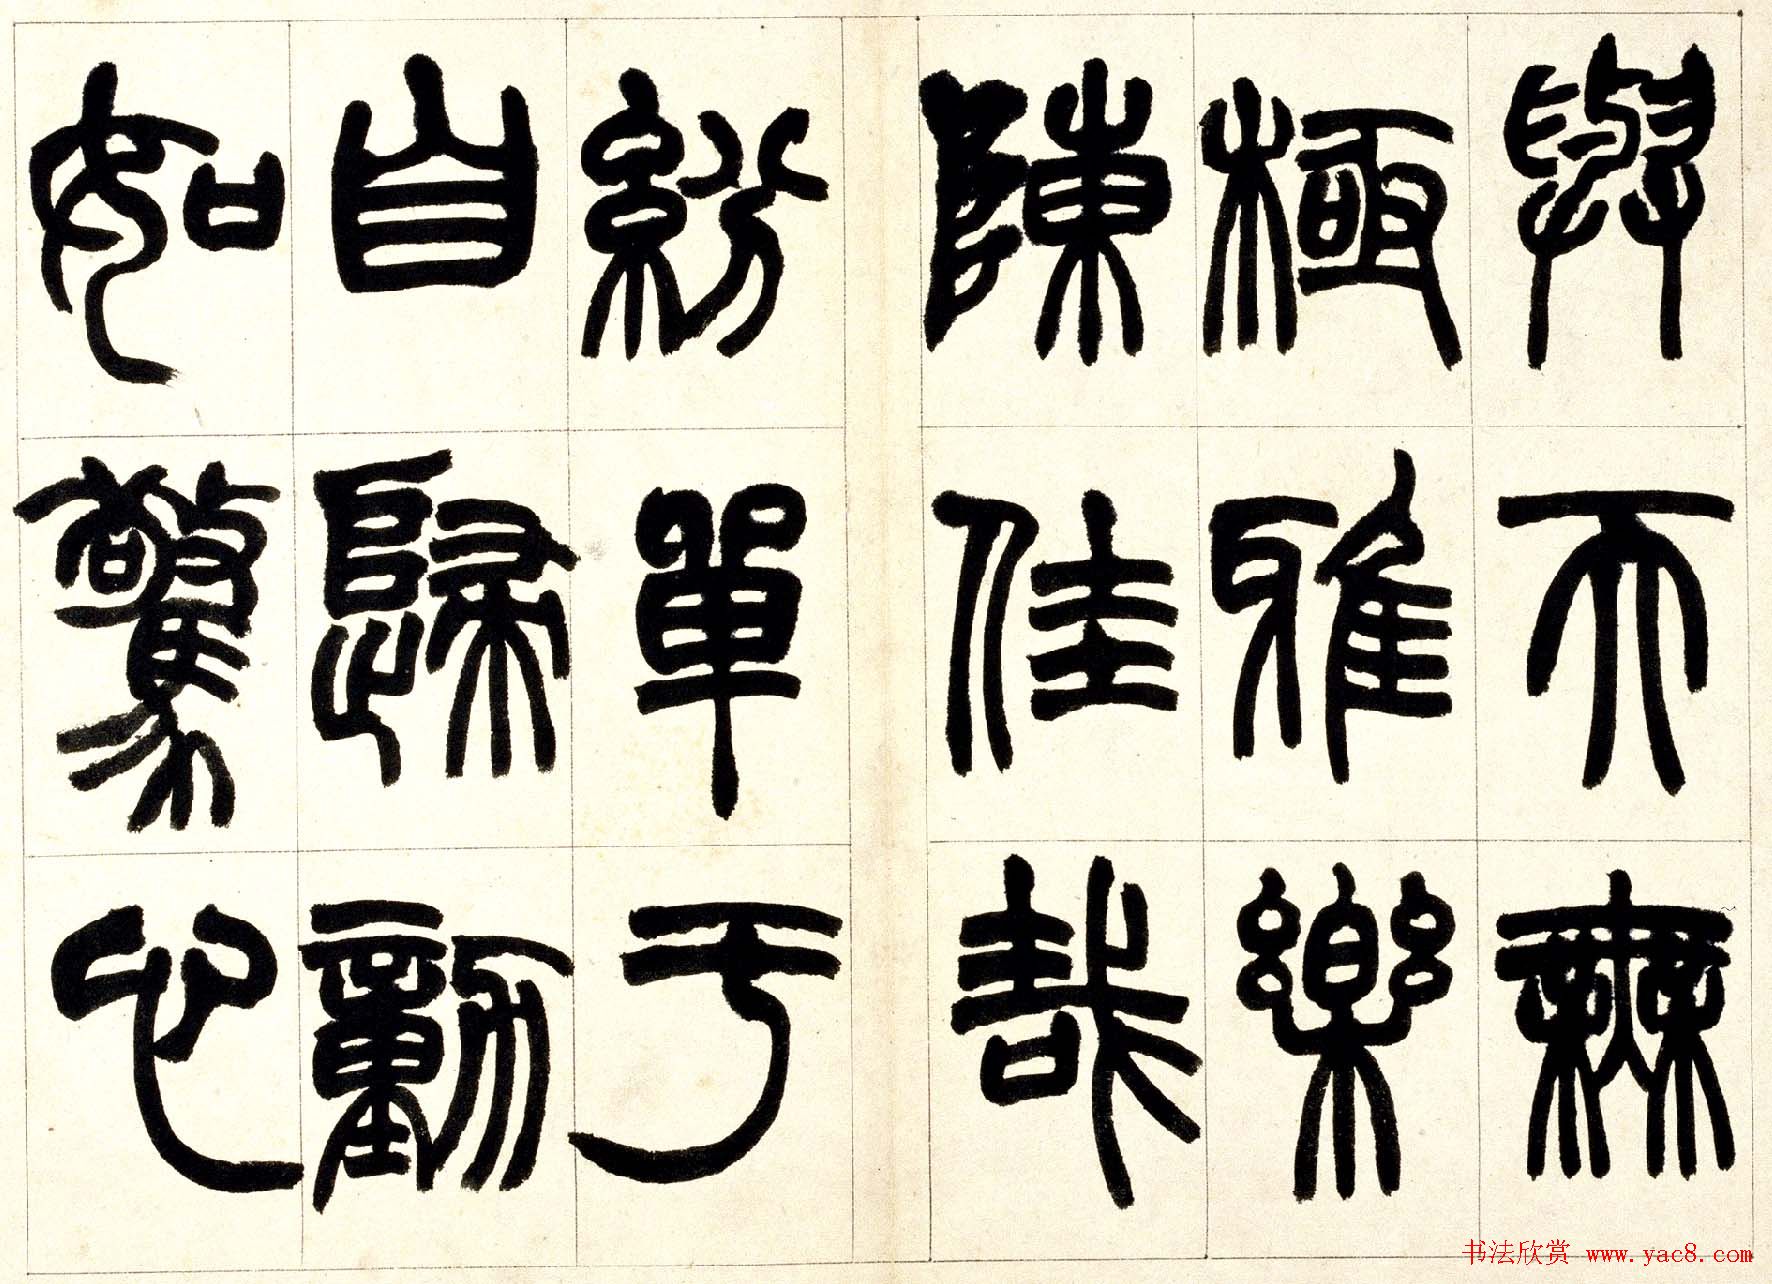 與天無
極雅樂
陳佳哉
紛單于
自歸動
如驚心
书法欣赏 www.yac8.com